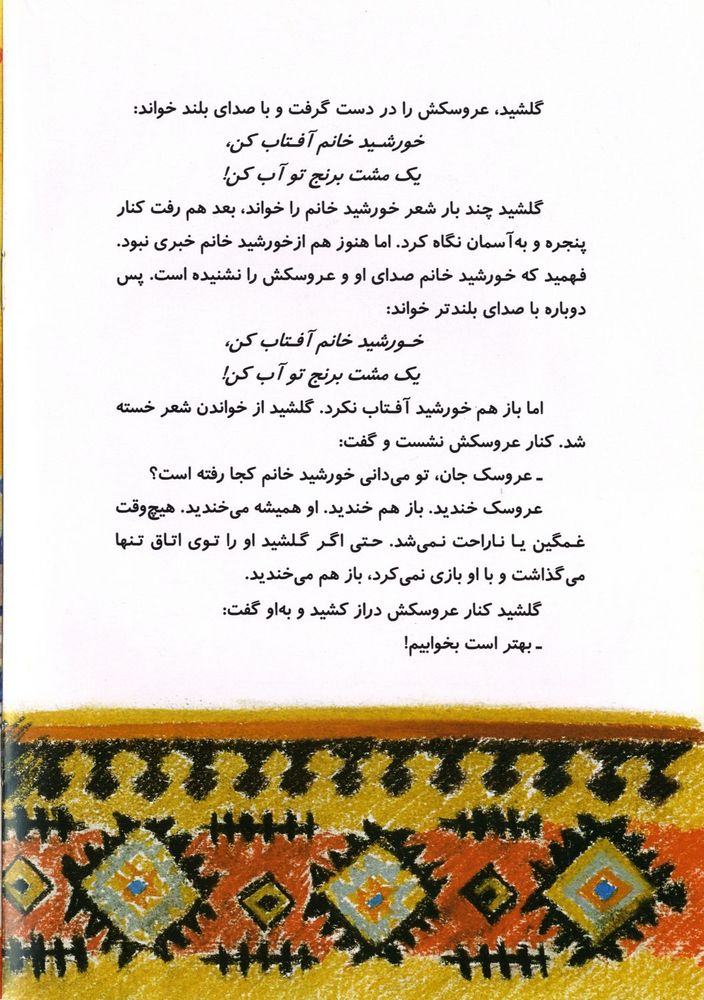 گلشید، عروسکش را در دست گرفت و با صدای بلند خواند:
خورشید خانم آفتاب کن،
یک مشت برنج تو آب کن!
گلشید چند بار شعر خورشید خانم را خواند، بعد هم رفت کنار
پنجره و به‌آسمان نگاه کرد. اما هنوز هم ازخورشید خانم خبری نبود.
فهمید که خورشید خانم صدای او و عروسکش را نشنیده است. پس
دوباره با صدای بلندتر خواند:
خورشید خانم آفتاب کن،
یک مشت برنج تو آب کن!
اما باز هم خورشید آفتاب نکرد. گلشید از خواندن شعر خسته
شد. کنار عروسکش نشست و گفت:
ـ عروسک جان، تو می‌دانی خورشید خانم کجا رفته است؟
عروسک خندید. باز هم خندید. او همیشه می‌خندید. هیچ‌وقت
غمگین یا ناراحت نمی‌شد. حتی اگر گلشید او را توی اتاق تنها
می‌گذاشت و با او بازی نمی‌کرد، باز هم می‌خندید.
گلشید کنار عروسکش دراز کشید و به‌او گفت:
ـ بهتر است بخوابیم!